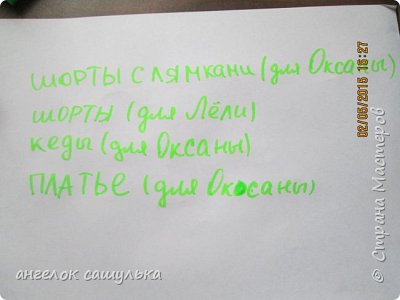 ШОРТЫ С ЛЯМКАНИ (для Оксаны)
ШОРТЫ (для Лёли)
Кеды (для Оксаны)
ПЛАТЬЕ (для Оксаны)
02/05/2015 16:27
© Страна Мастеров
ангелок сашулька